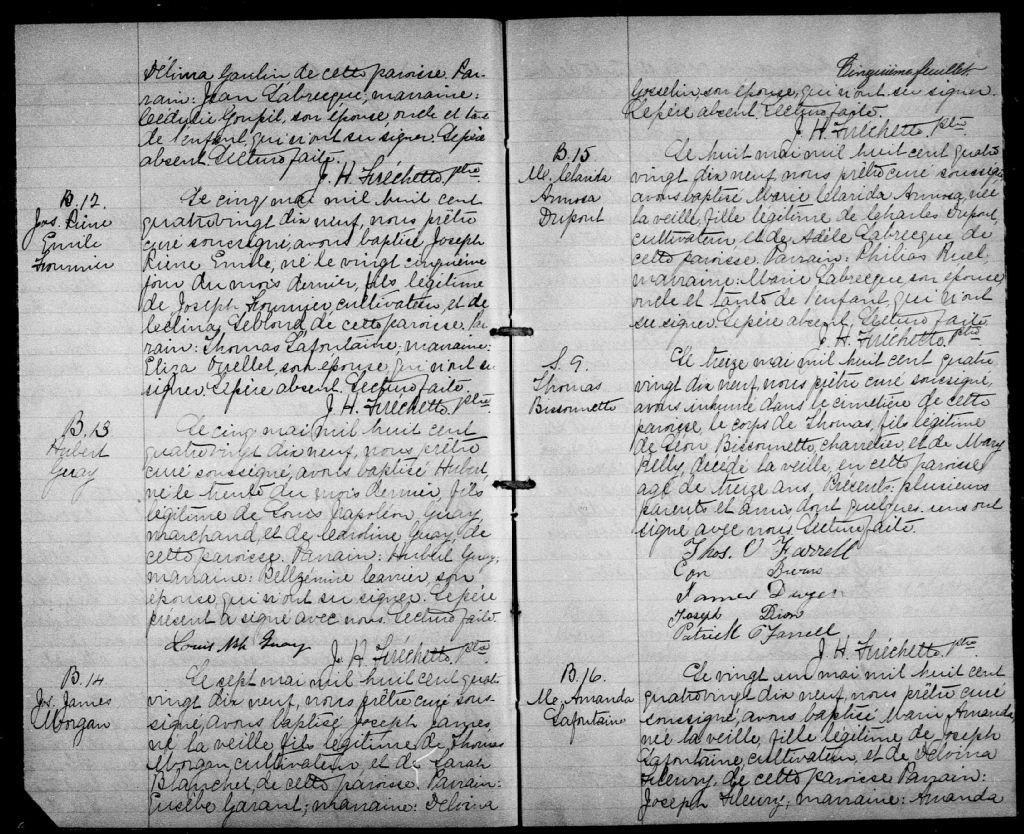 Délima Gaulin de cette paroisse. Par-
rain: Jean Labrecque; marraine:
Goupil, son épouse, oncle et tante
de l'enfant, qui n'ont su signer. Le père
absent. Lecture faite.
J. H. Fréchette, ptre
B. 12.
Jos. Pière
Emile
Fournier
Le cinq mai mil huit cent
quatrevingt dix neuf, nous prêtre
curé soussigné, avons baptisé Joseph
Pière Emile, né le vingt cinquième
jour du mois dernier, fils légitime
de Joseph Fournier, cultivateur, et de
Leblond de cette paroisse. Par-
rain: Thomas Lafontaine; marraine:
Eliza Ouellet, son épouse, qui n'ont su
signer. Le père absent. Lecture faite.
J. H. Fréchette, ptre
B. 13
Hubert
Guay
Le cinq mai mil huit cent
quatrevingt dix neuf, nous prêtre
curé soussigné, avons baptisé Hubert,
né le trente du mois dernier, fils
légitime de Louis Napoléon Guay,
marchand, et de Caroline Guay, de
cette paroisse. Parrain: Hubert Guay;
marraine: son
épouse qui n'ont su signer. Le père
présent a signé avec nous. Lecture faite.
Louis Nap Guay
J. H. Fréchette, ptre.
B. 14
Jos. James
Morgan
Le sept mai mil huit cent quatre
vingt dix neuf, nous prêtre curé sous-
signé, avons baptisé Joseph James,
né la veille, fils légitime de Thomas
Morgan, cultivateur, et de Sarah
Blanchet, de cette paroisse. Parrain:
Eusèbe Garant; marraine: Delvina
Cinquième feuillet.
Gosselin, son épouse, qui n'ont su signer.
Le père absent. Lecture faite.
J. H. Fréchette, ptre
B. 15
Me. Clarida
Annosa
Dupont
Le huit mai mil huit cent quatre
vingt dix neuf, nous prêtre curé soussigné,
avons baptisé Marie Clarida Annosa, née
la veille, fille légitime de Charles Dupont,
cultivateur, et de Adèle Labrecque de
cette paroisse. Parrain: Philias Ruel;
marraine: Marie Labrecque, son épouse,
oncle et tante de l'enfant, qui n'ont
su signer. Le père absent. Lecture faite.
J. H. Fréchette, ptre
S. 9.
Thomas
Bissonnette
Le treize mai mil huit cent quatre
vingt dix neuf, nous prêtre curé soussigné,
avons inhumé dans le cimetière de cette
paroisse, le corps de Thomas, fils légitime
de Léon Bissonnette, charretier, et de Mary
Kelly, décédé la veille, en cette paroisse
agé de treize ans. Présents: plusieurs
parents et amis dont quelques uns ont
signé avec nous. Lecture faite.
Thos. O Farrell
Con
James Dwyer
Joseph Dion
Patrick O'Farrell
J. H. Fréchette, ptre
B. 16.
Me. Amanda
Lafontaine
Le vingt un mai mil huit cent
quatrevingt dix neuf, nous prêtre curé
soussigné, avons baptisé Marie Amanda,
née la veille, fille légitime de Joseph
Lafontaine, cultivateur, et de Delvina
Fleury, de cette paroisse. Parrain:
Joseph Fleury; marraine: Amanda